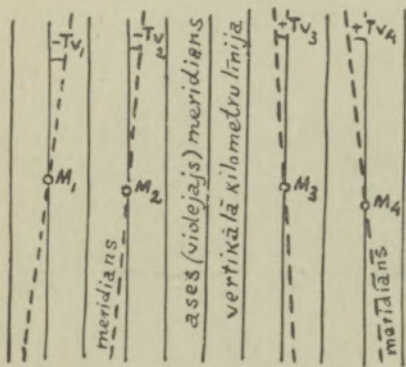 -Tv₁
-Tv₂
+Tv₃
+Tv₄
M₁
M₂
M₃
M₄
meridians
ases (vidējais) meridians
vertikālā kilometru līnija
meridians